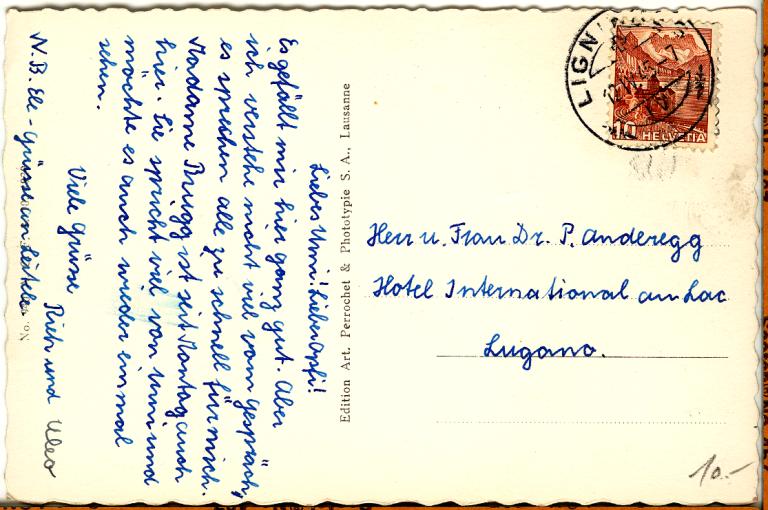 Liebes Umi! Lieber Opfi!
Es gefällt mir hier ganz gut. Aber
ich verstehe nicht viel vom gespräch,
es sprechen alle zu schnell für mich.
Madame Brügg ist seit Montag auch
hier. Sie spricht viel von Umi und
möchte es auch wieder einmal
sehen.
Viele Grüsse
Rieh und Ueo
N.B. Ele - grüsse an
No.
Edition Art. Perrochet & Phototypie S. A., Lausanne
LIGN
10 HELVETIA
Herr u. Frau Dr. P. Anderegg
Hotel International au Lac
Lugano.
10.-